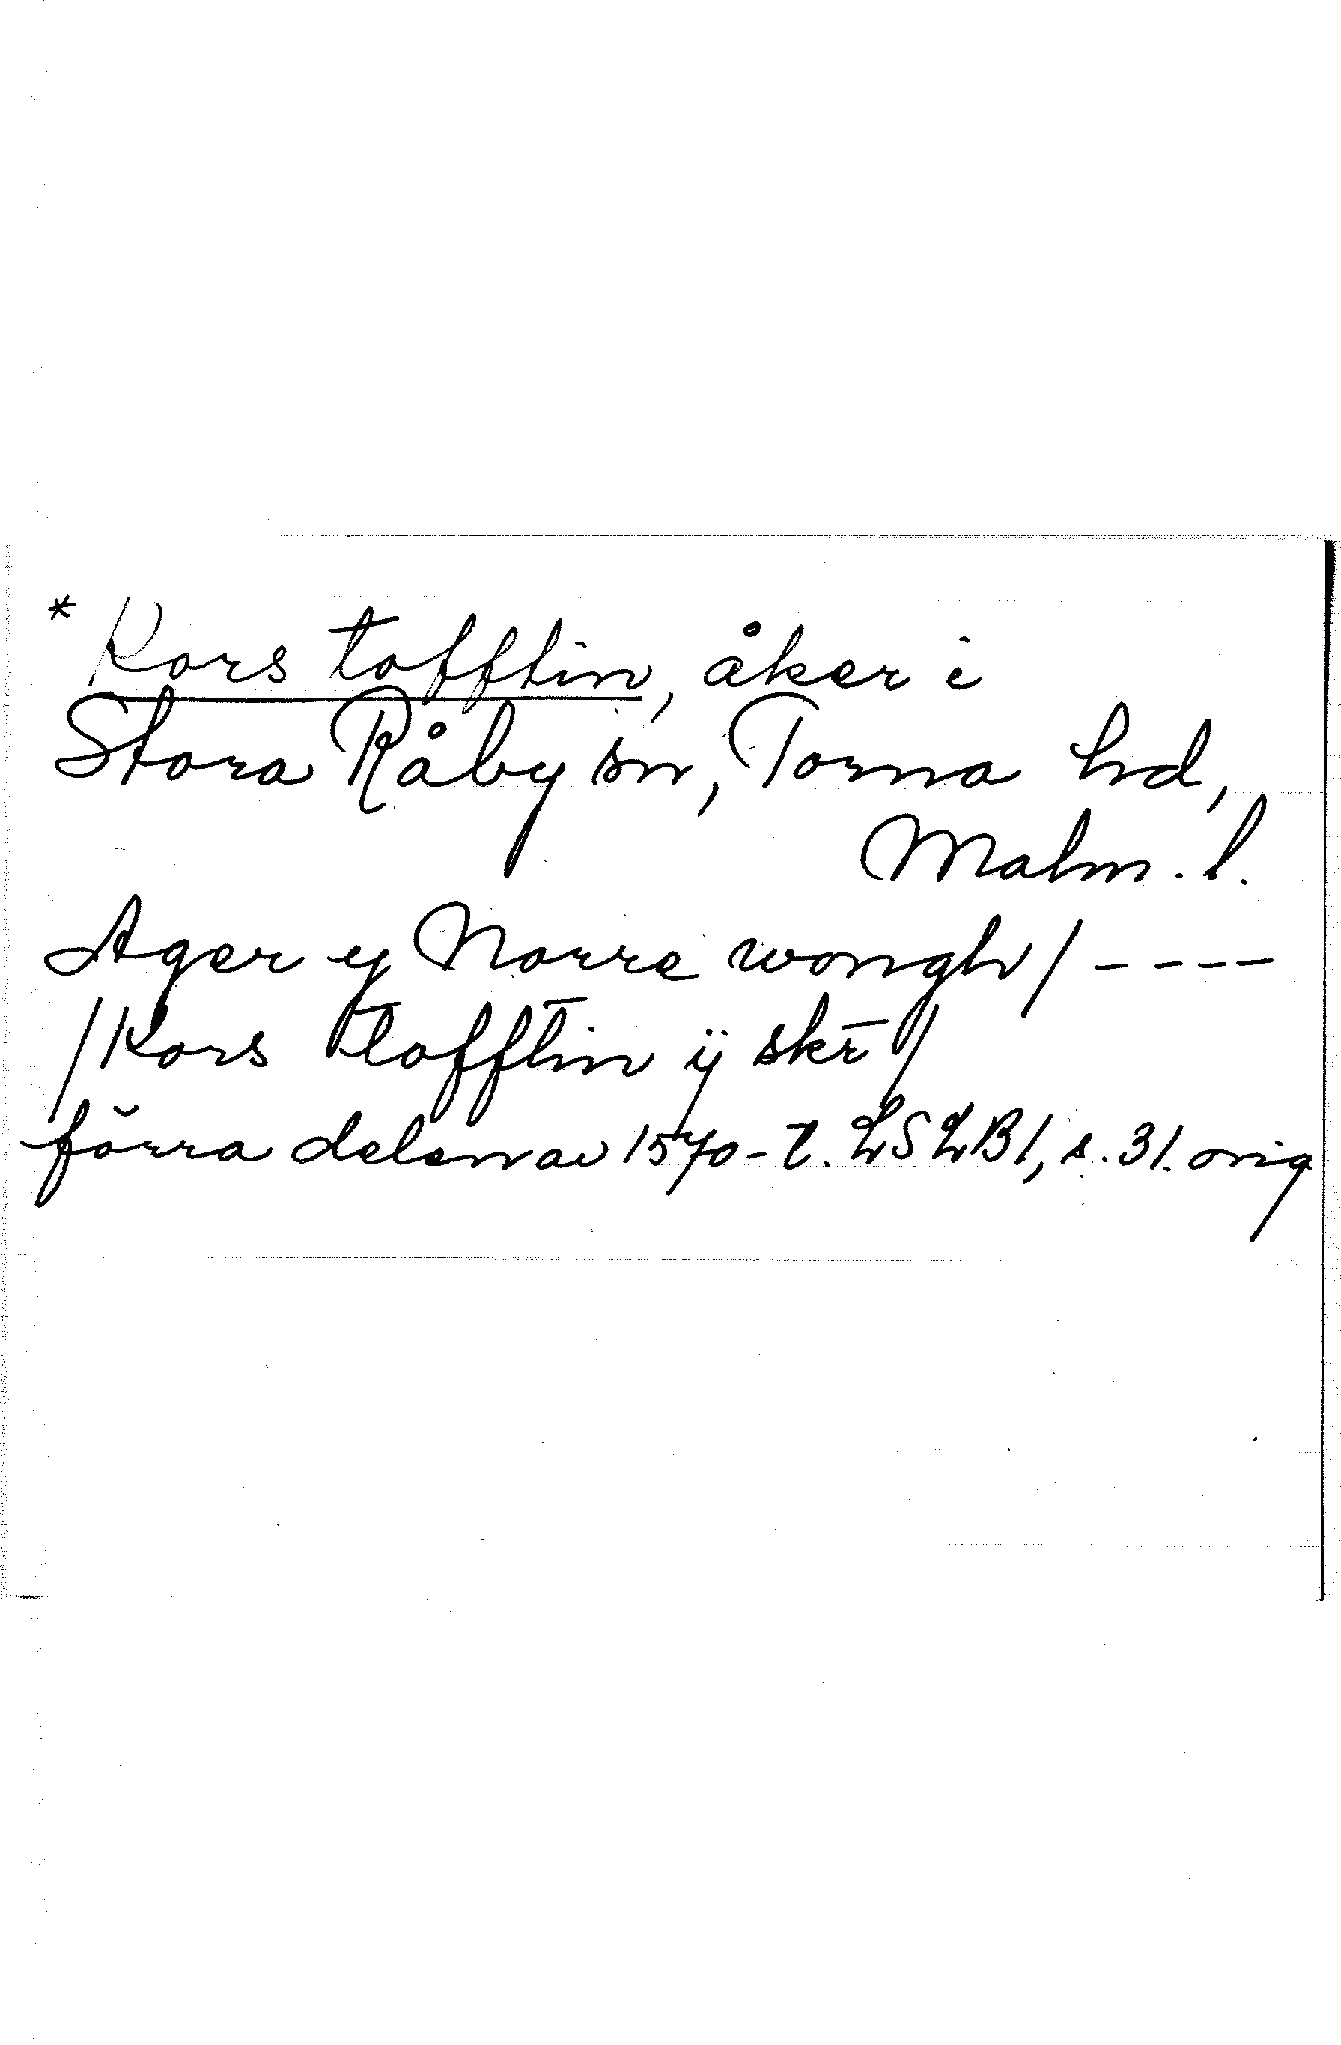 * Kors tofftin, åker i
Stora Råby sn, Torna hd,
Malm. l.
Ager y Norre wongh / ----
/ Kors tofftin ÿ skr̄ /
förra delen av 1570-t. LSLB1, s. 31. orig